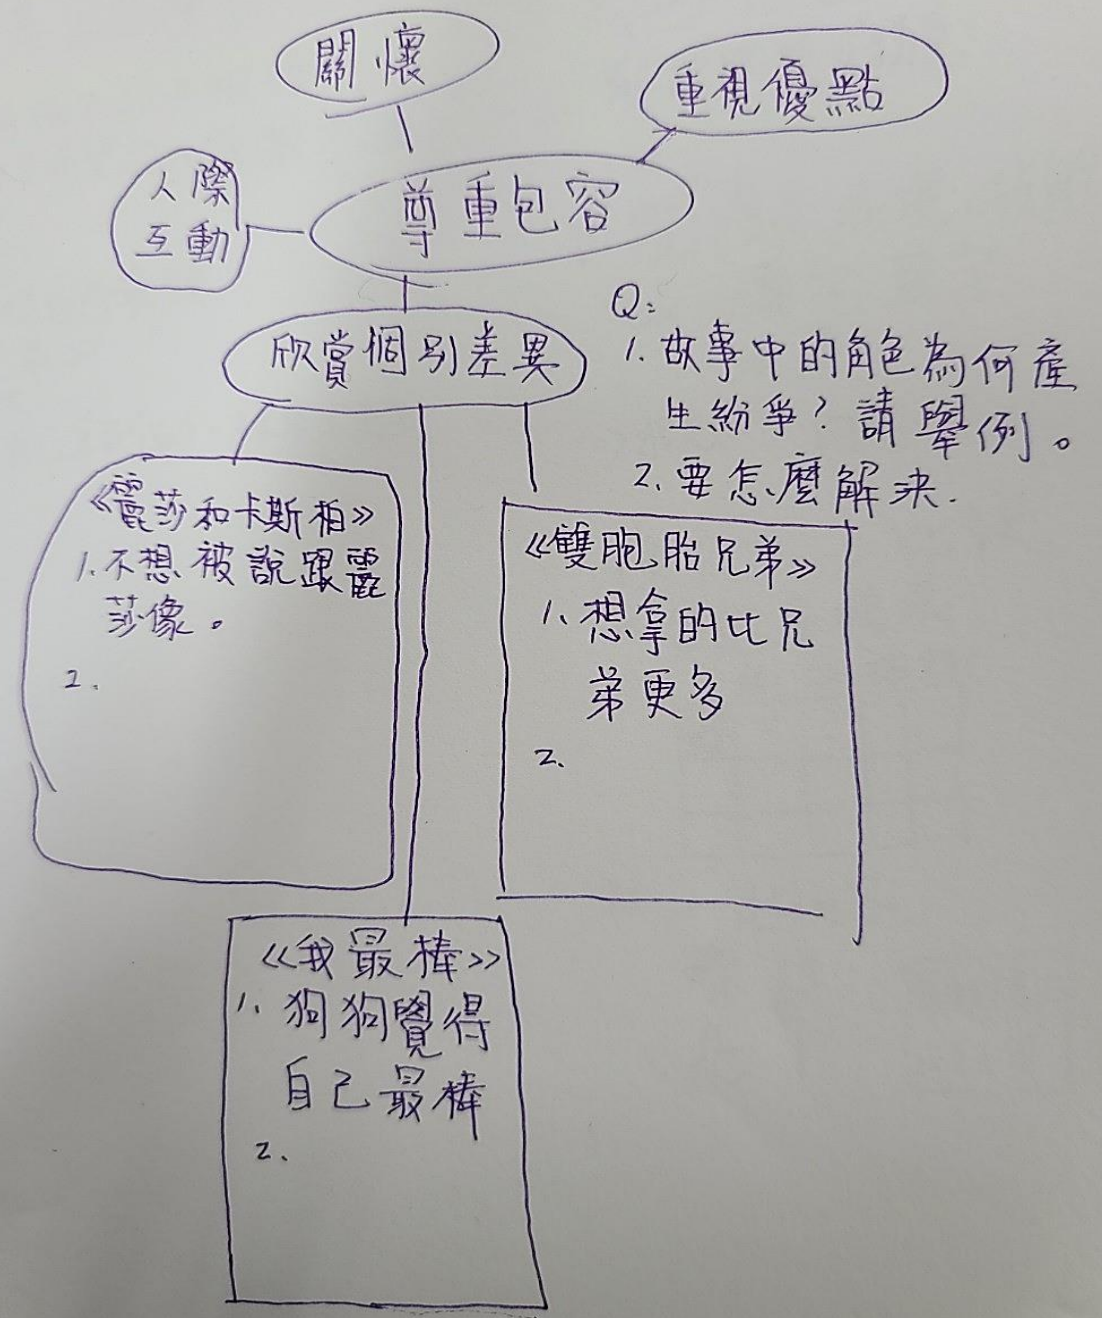 關懷
重視優點
人際
互動
尊重包容
欣賞個別差異
Q:
1. 故事中的角色為何產
生紛爭？請舉例。
2. 要怎麼解決.
《麗莎和卡斯柏》
1. 不想被說跟麗
莎像。
2.
《雙胞胎兄弟》
1. 想拿的比兄
弟更多
2.
《我最棒》
1. 狗狗覺得
自己最棒
2.